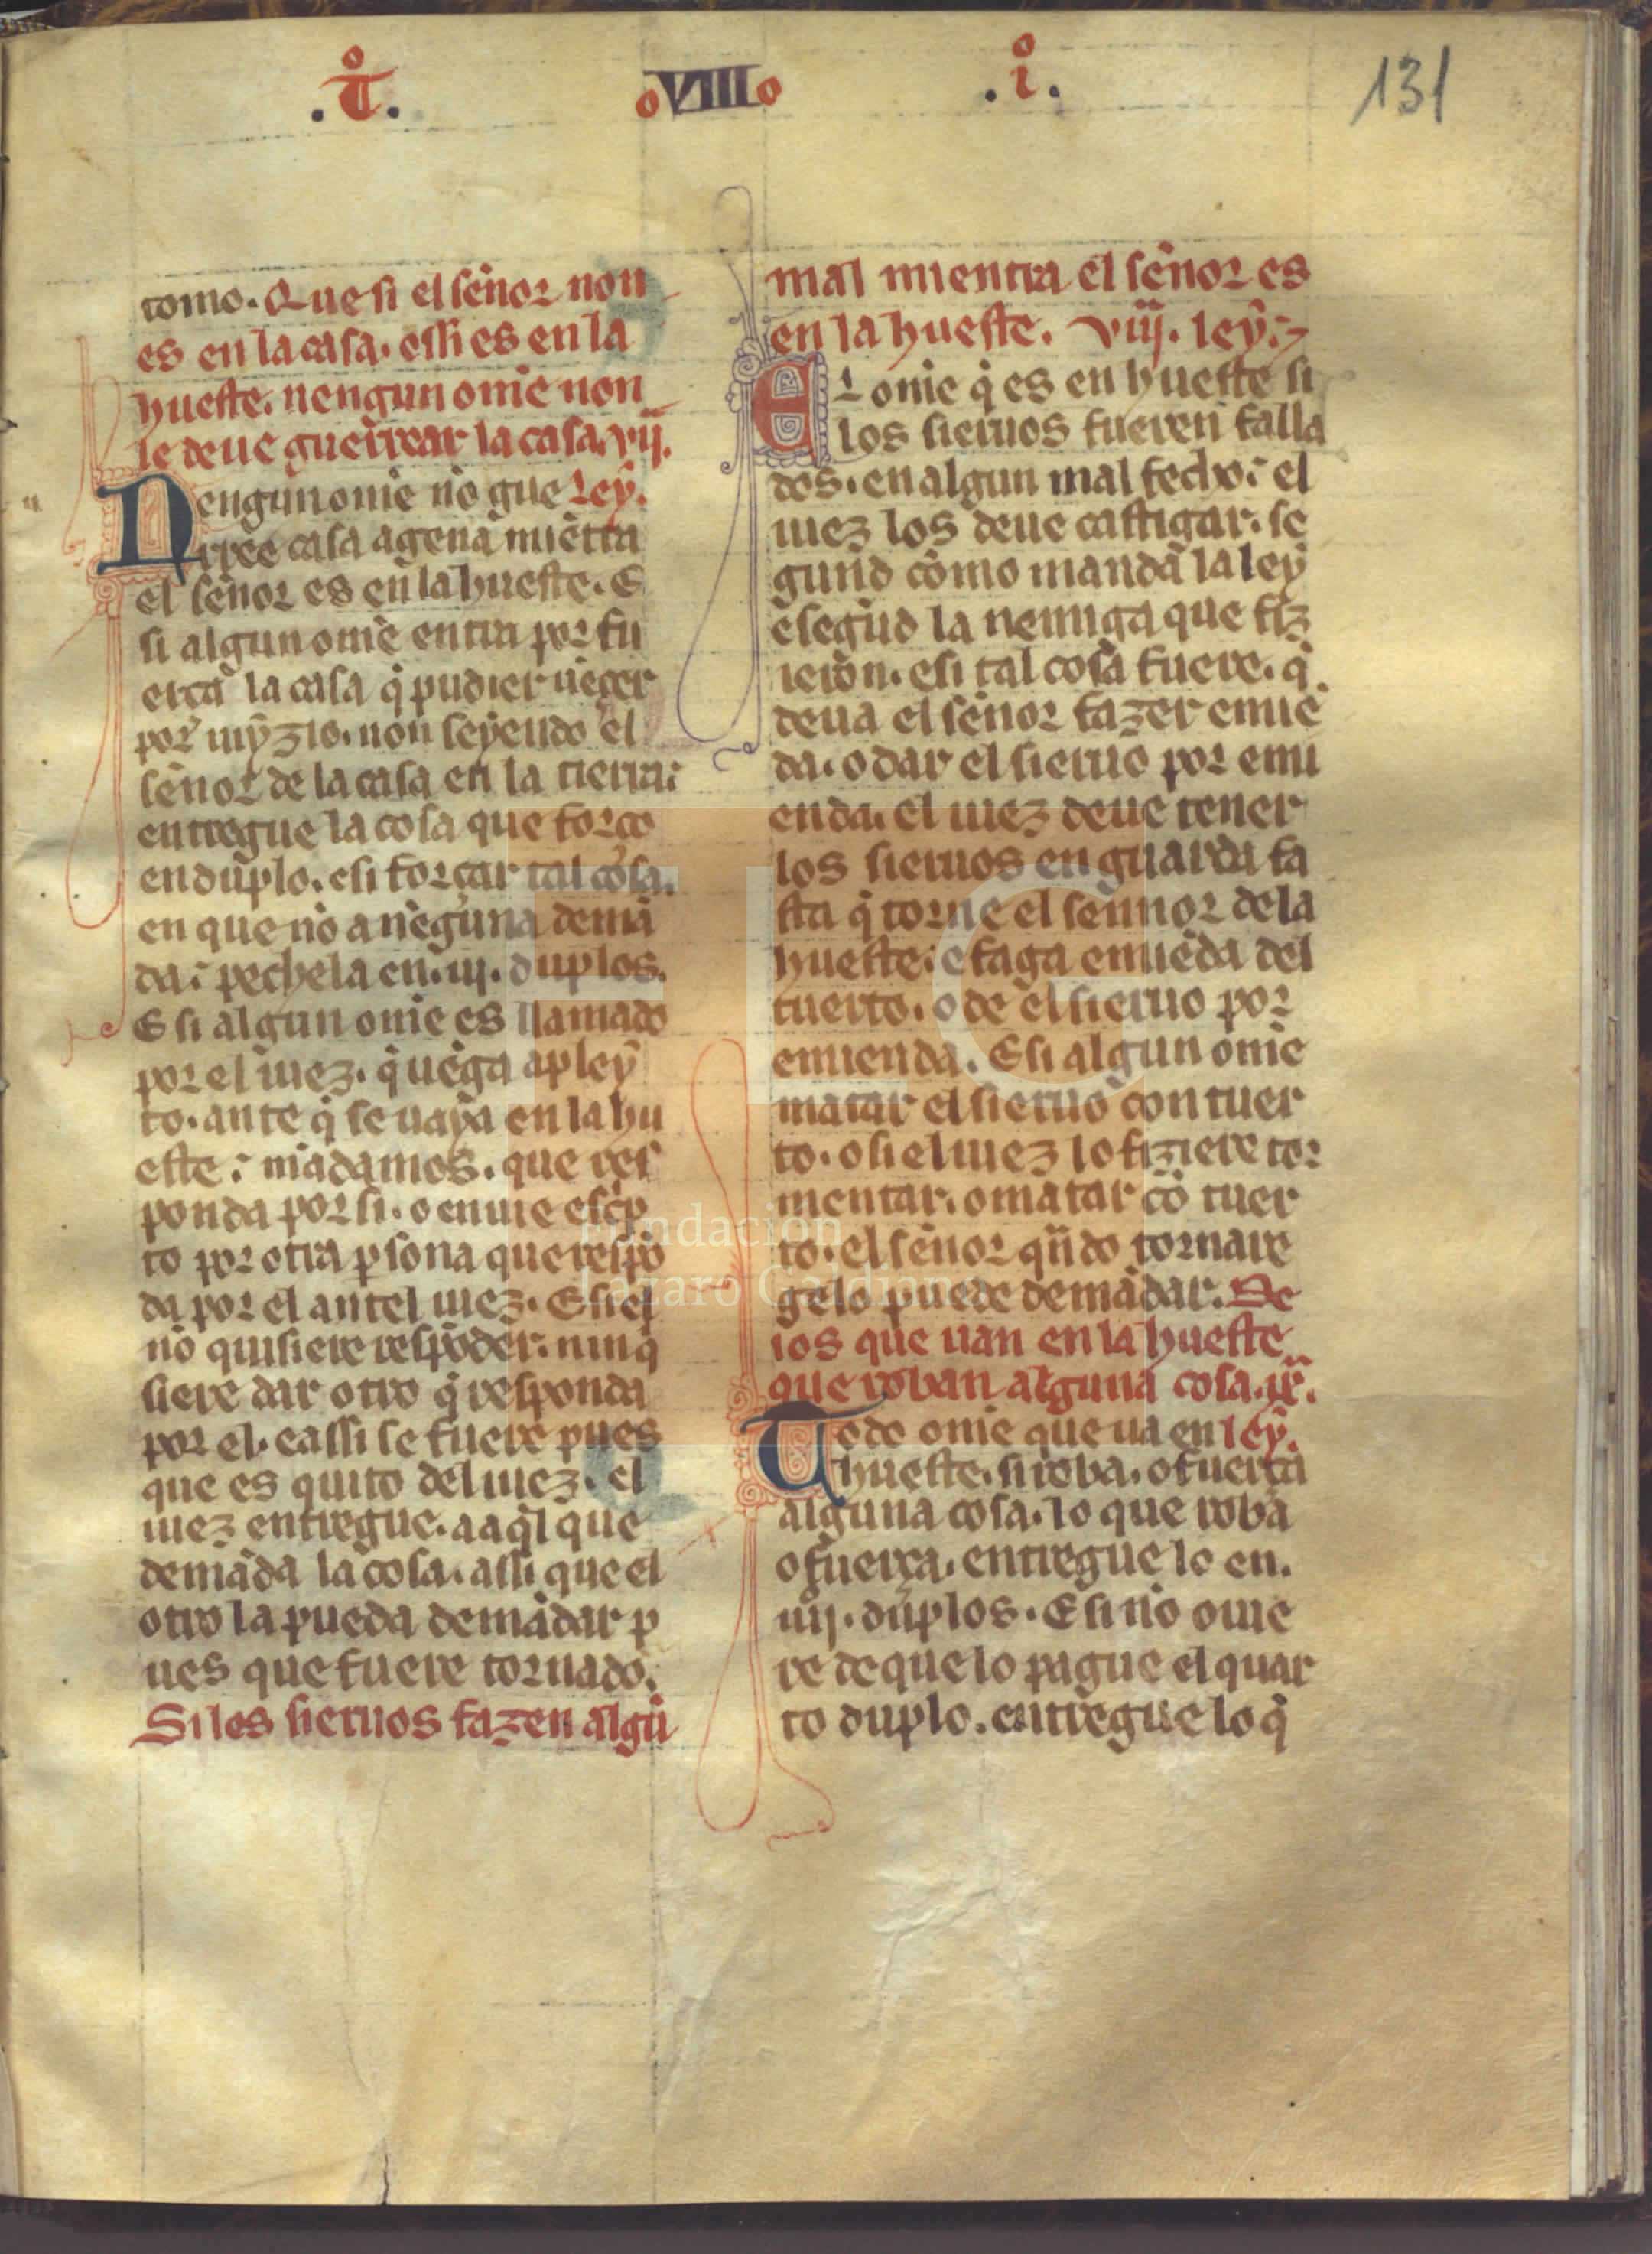 .T°. oVIIIo .i°. 131
tomo. Que si el señor non
es en la casa. essi es en la
hueste. nengun ome non
le deue guerrear la casa. vij.
Nengun ome nõ gue ley.
rree casa agena miẽtra
el señor es en la hueste. E
si algun ome entra por fu
erça la casa q̃ pudier uẽçer
por iuyzio. non seyendo el
señor de la casa en la tierra:
entregue la cosa que forço
en duplo. esi forçar tal cosa.
en que nõ a nẽguna demã
da: pechela en .iij. duplos.
E si algun ome es llamado
por el iuez. q̃ uẽga a pley
to. ante q̃ se uaya en la hu
este: mãdamos. que res
ponda por si. o enuie esc̃p
to por otra p̃sona que respõ
da por el antel iuez. E si el
nõ quisiere respõder. nin q̃
siere dar otro q̃ responda
por el. e assi se fuere pues
que es quito del iuez. el
iuez entregue. a aq̃l que
demãda la cosa. assi que el
otro la pueda demãdar p
ues que fuere tornado.
Si los sieruos fazen algũ
mal mientra el señor es
en la hueste. viij. ley.
El ome q̃ es en hueste si
los sieruos fueren falla
dos. en algun mal fecho: el
iuez los deue castigar. se
gund como manda la ley
e segũd la nemiga que fiz
ieron. esi tal cosa fuere. q̃
deua el señor fazer emiẽ
da. o dar el sieruo por emi
enda. el iuez deue tener
los sieruos en guarda fa
sta q̃ torne el sennor de la
hueste: e faga emiẽda del
tuerto. o de el sieruo por
emienda. E si algun ome
matar el sieruo con tuer
to. o si el iuez lo fiziere tor
mentar. o matar cõ tuer
to. el señor qñdo tornare
gelo puede demãdar. De
los que uan en la hueste
que roban alguna cosa. ix.
Todo ome que ua en ley.
hueste. si roba. o fuerça
alguna cosa. lo que roba
o fuerça. entregue lo en.
iiij. duplos. E si nõ ouie
re de que lo pague el quar
to duplo. entregue lo q̃
Fundación
Lázaro Galdiano